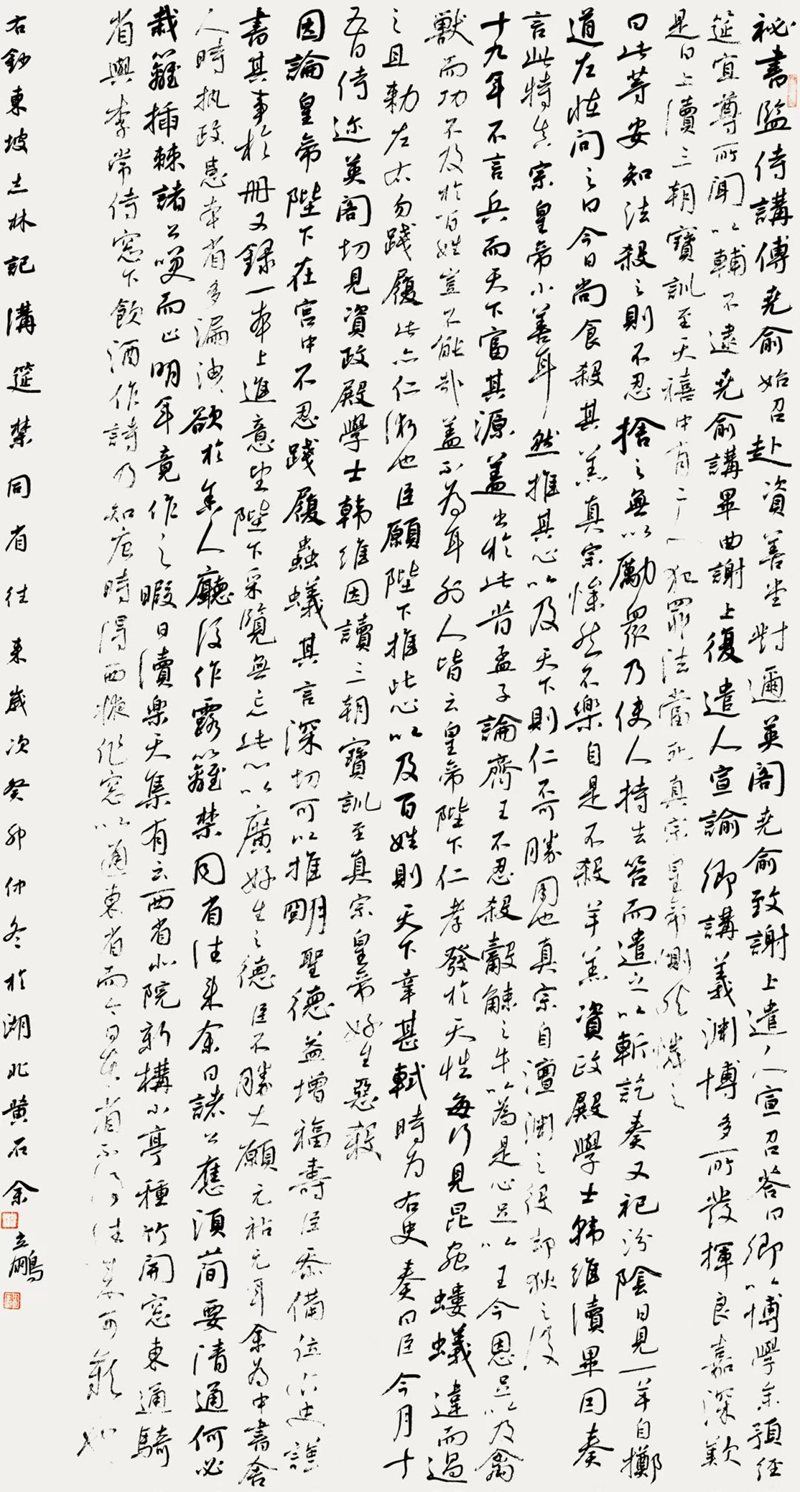 祕書監侍講傅堯俞始召赴資善堂對邇英閣堯俞致謝上遣人宣召答曰卿以博學參預經
筵宜尊所聞以輔不逮堯俞講畢曲謝上復遣人宣諭卿講義淵博多所發揮良嘉深歎
是日上讀三朝寶訓至天禧中有二人犯罪法當死真宗皇帝惻然憐之
曰此等安知法殺之則不忍捨之無以勵眾乃使人持去笞而遣之以斬訖奏又祀汾陰日見一羊自擲
道左怪問之曰今日尚食殺其羔真宗慘然不樂自是不殺羊羔資政殿學士韓維讀畢因奏
言此特真宗皇帝小善耳然推其心以及天下則仁不可勝用也真宗自澶淵之役却狄之後
十九年不言兵而天下富其源蓋出於此昔孟子論齊王不忍殺觳觫之牛以為是心足以王今恩足以及禽
獸而功不及於百姓豈不能哉蓋不為耳外人皆云皇帝陛下仁孝發於天性每行見昆蟲螻蟻違而過
之且勅左右勿踐履此亦仁術也臣願陛下推此心以及百姓則天下幸甚軾時为右史奏曰臣今月十
五日侍迩英閣切見資政殿學士韓維因讀三朝寶訓至真宗皇帝好生惡殺
因論皇帝陛下在宮中不忍踐履蟲蟻其言深切可以推明聖德益增福壽臣忝備位右史謹
書其事於冊又錄一本上進意望陛下采覽無忘此心以廣好生之德臣不勝大願元祐元年余為中書舍
人時执政患本省多漏洩欲於舍人廳後作露籬禁同省往來余曰諸公應須簡要清通何必
栽籬插棘諸公笑而止明年竟作之暇日讀樂天集有云西省北院新構小亭種竹開窓東通騎
省與李常侍窓下飲酒作詩乃知唐時得西掖作窓以通東省而今日本省不得往來可歎也
右鈔東坡志林記講筵禁同省往来歲次癸卯仲冬於湖北黄石余立鵬